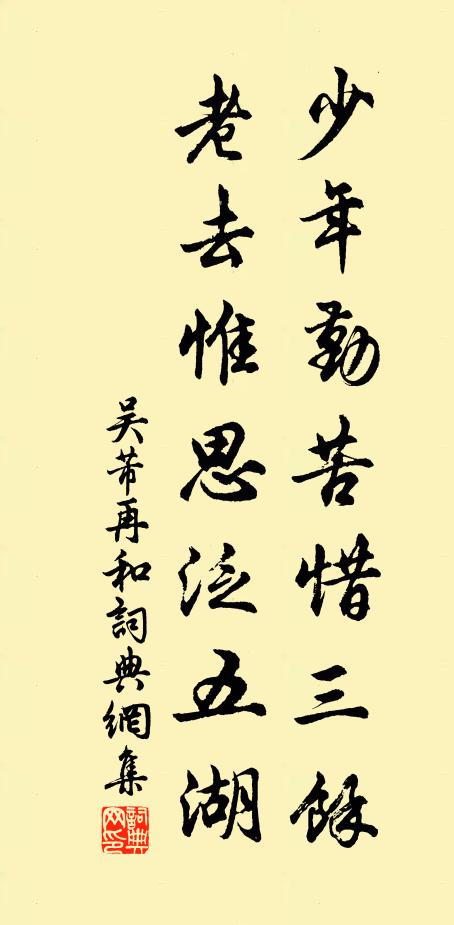 少年勤苦惜三餘
老去惟思泛五湖
吴芾再和詞典網集
詞典網印